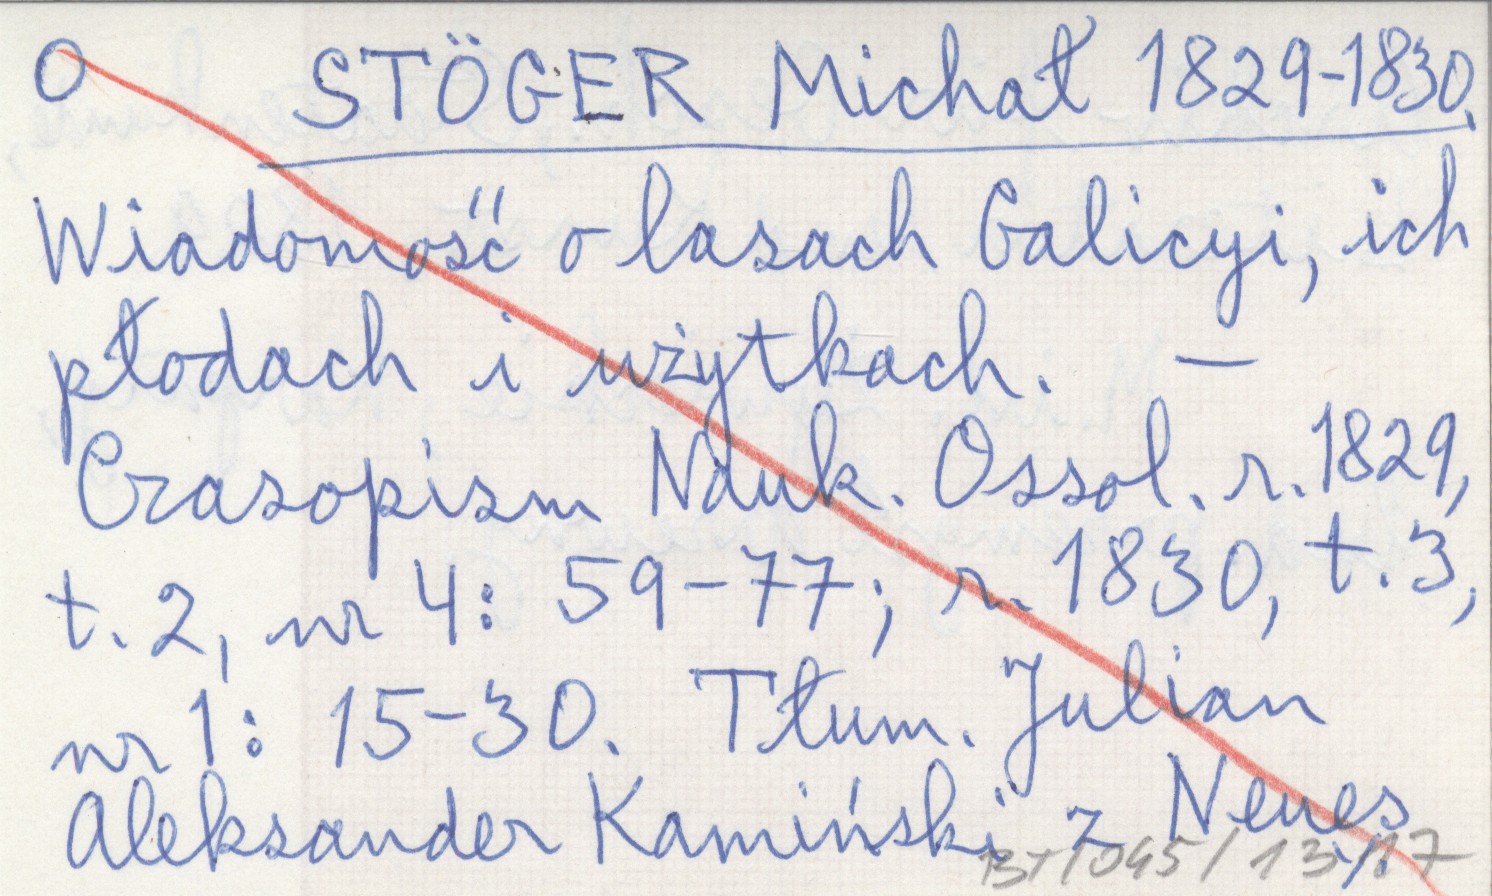 O STÖGER Michał 1829-1830.
Wiadomość o lasach Galicyi, ich
płodach i użytkach. —
Czasopism Nauk. Ossol. r. 1829,
t. 2, nr 4: 59-77; r. 1830, t. 3,
nr 1: 15-30. Tłum. Julian
Aleksander Kamiński z Neues
BT/045/13/17